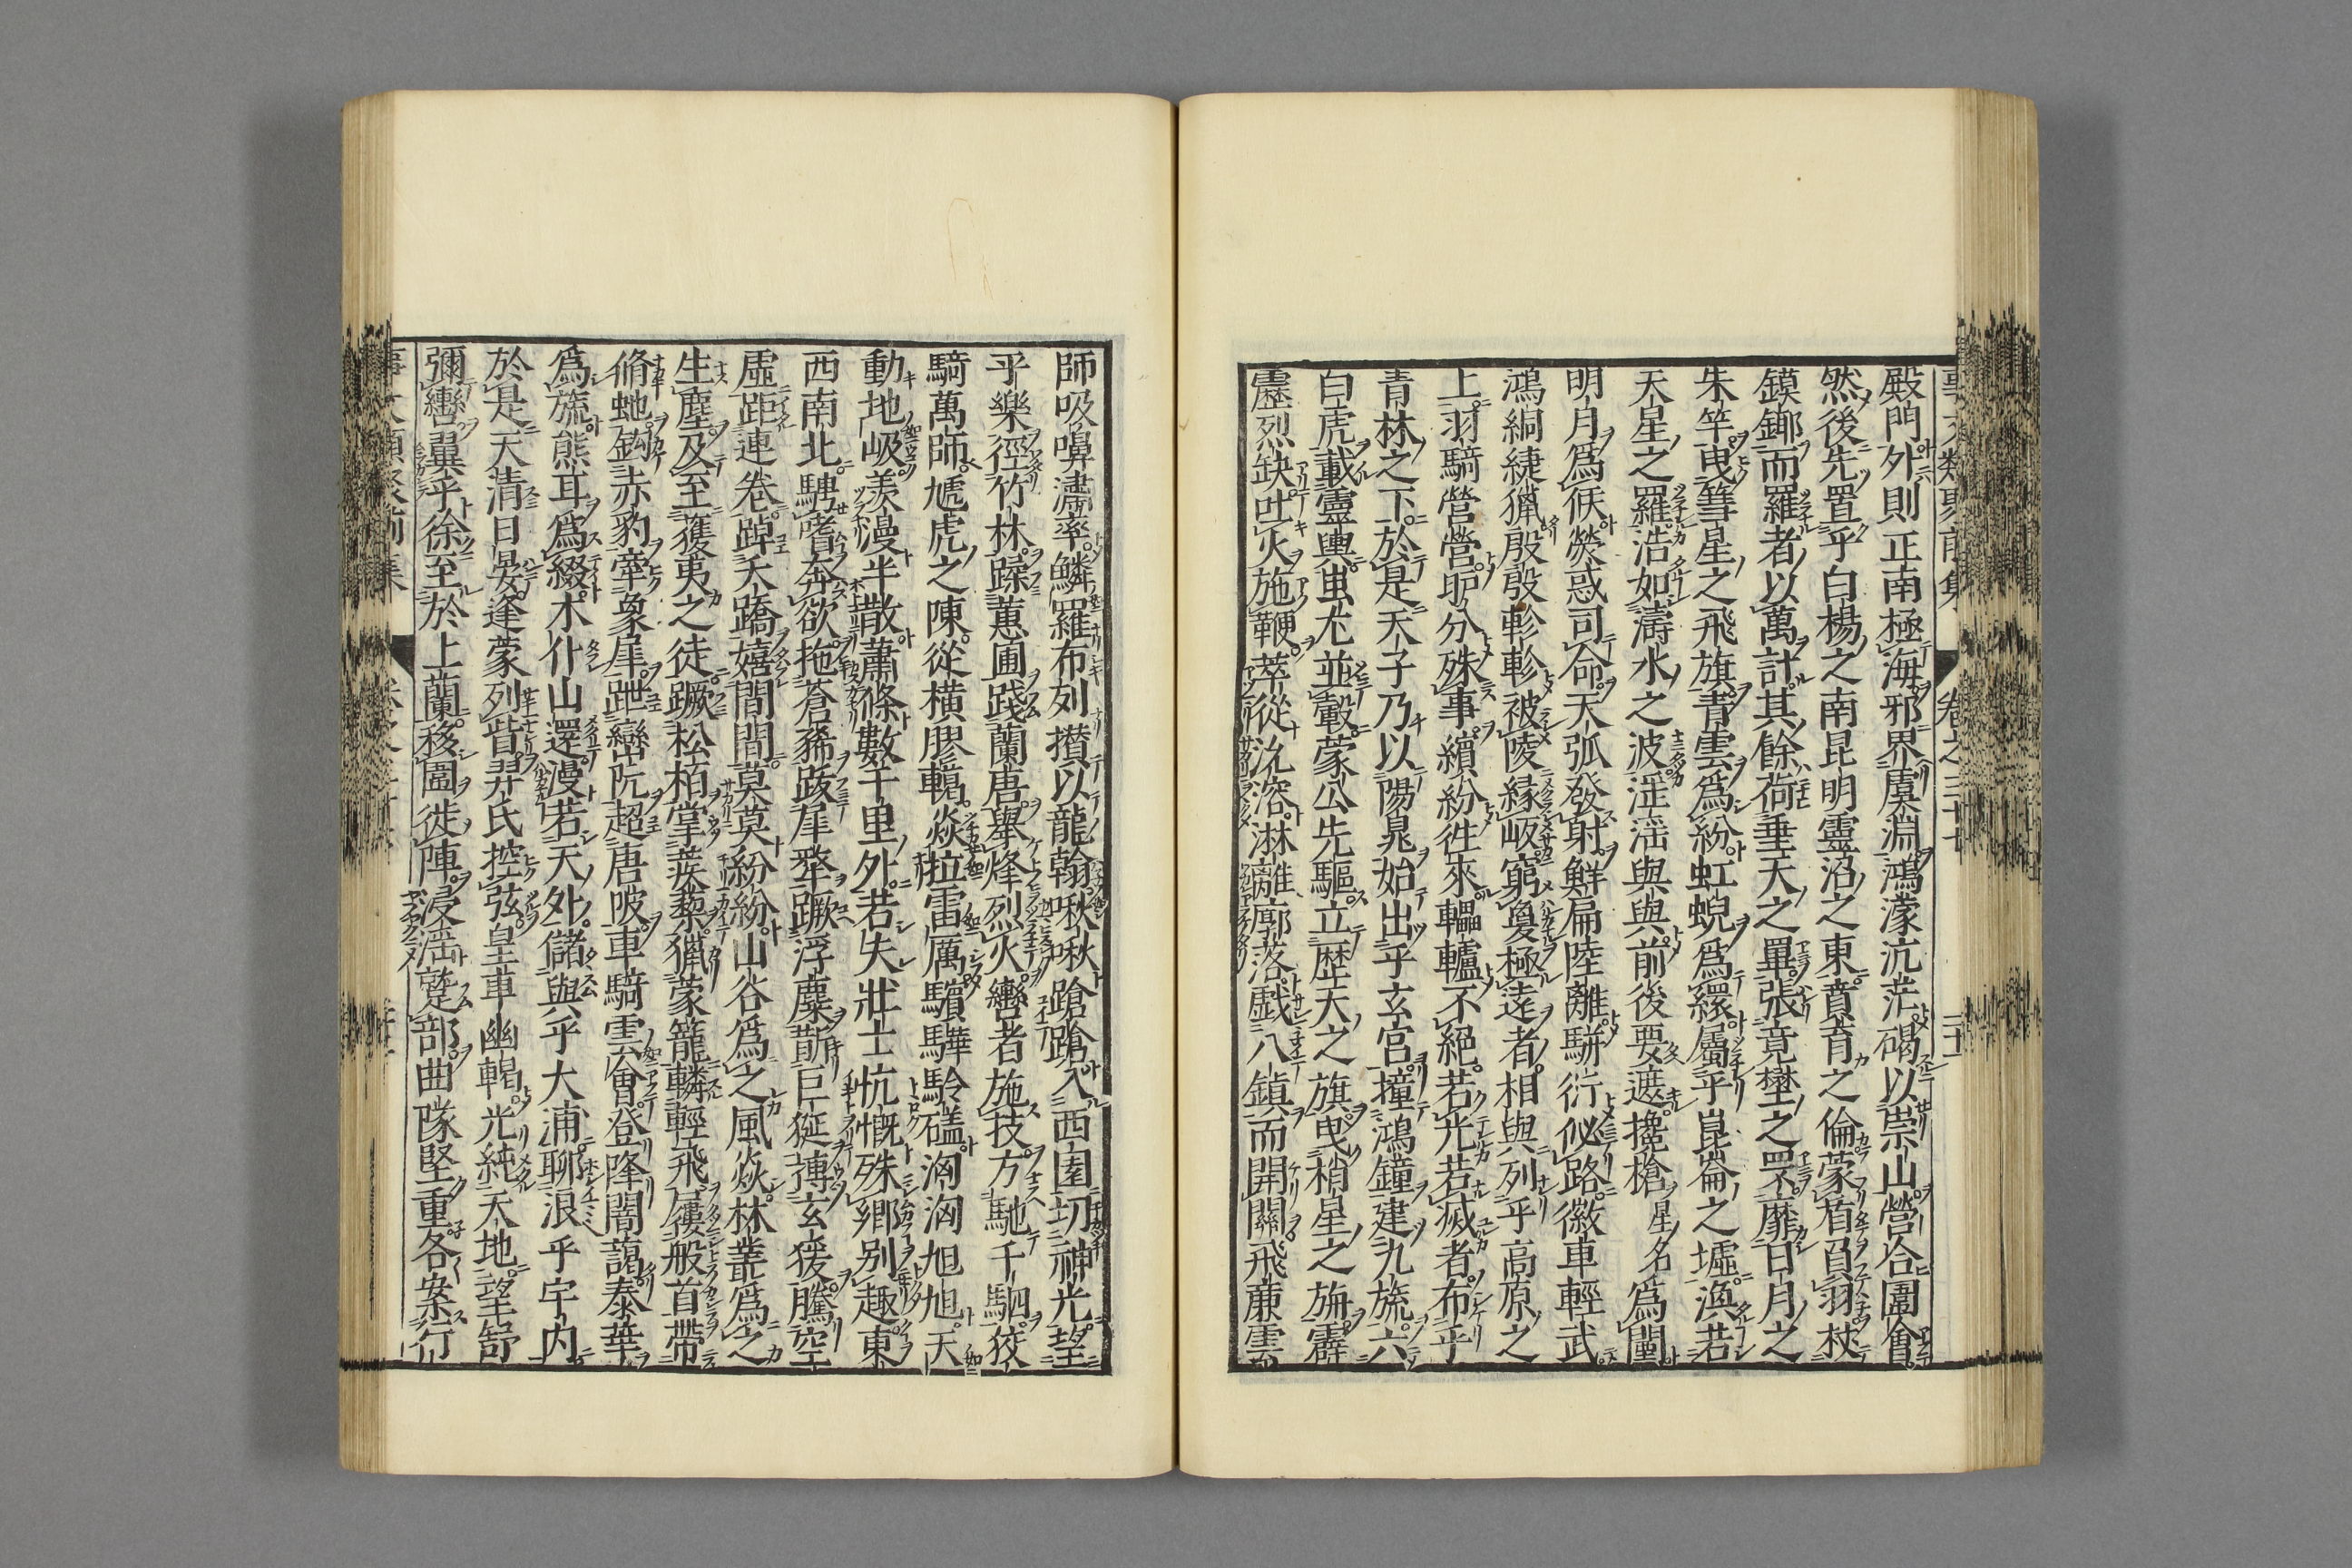 殿門外則正南極海邪界虞淵鴻濛沆茫碣以崇山營合圍會
然後先置乎白楊之南昆明靈沼之東賁育之倫蒙盾負羽杖
鏌鋣而羅者以萬計其餘荷垂天之畢張竟壄之罘靡日月之
朱竿曳彗星之飛旗青雲爲紛虹蜺爲繯屬乎崑崙之墟渙若
天星之羅浩如濤水之波淫淫與與前後要遮攙槍星名爲闉
明月爲候熒惑司命天弧發射鮮扁陸離駢衍佖路徽車輕武
鴻絧緁獵殷殷軫軫被陵緣岅窮敻極遠者相與列乎高原之
上羽騎營營昈分殊事繽紛往來轠轤不絕若光若滅者布乎
青林之下於是天子乃以陽晁始出乎玄宮撞鴻鐘建九旒六
白虎載靈輿蚩尤並轂蒙公先驅立歷天之旗曳梢星之旃霹
靂烈缺吐火施鞭萃從沇溶淋離廓落戲八鎮而開關飛廉雲
師吸嚊潚率鱗羅布列攢以龍翰啾啾蹌蹌入西園切神光望
平樂徑竹林蹂蕙圃踐蘭唐舉烽烈火轡者施技方馳千駟狡
騎萬師虓虎之陳從橫膠轕猋拉雷厲驞駍駖磕洶洶旭旭天
動地岋羨漫半散蕭條數千里外若夫壯士忼慨殊鄉別趣東
西南北騁耆奔欲拖蒼豨跋犀犛蹶浮麋斮巨狿搏玄猨騰空
虛距連卷踔夭蹻嬉間間莫莫紛紛山谷爲之風猋林叢爲之
生塵及至獲夷之徒蹶松栢掌蒺藜獵蒙籠轔輕飛屨般首帶
脩虵鉤赤豹摼象犀跇巒阬超唐陂車騎雲會登降闇藹泰華
爲旒熊耳爲綴木仆山還漫若天外儲與乎大浦聊浪乎宇內
於是天清日晏逢蒙列眥羿氏控弦皇車幽輵光純天地望舒
彌轡翼乎徐至於上蘭移圍徙陣浸淫蹵部曲隊堅重各案行